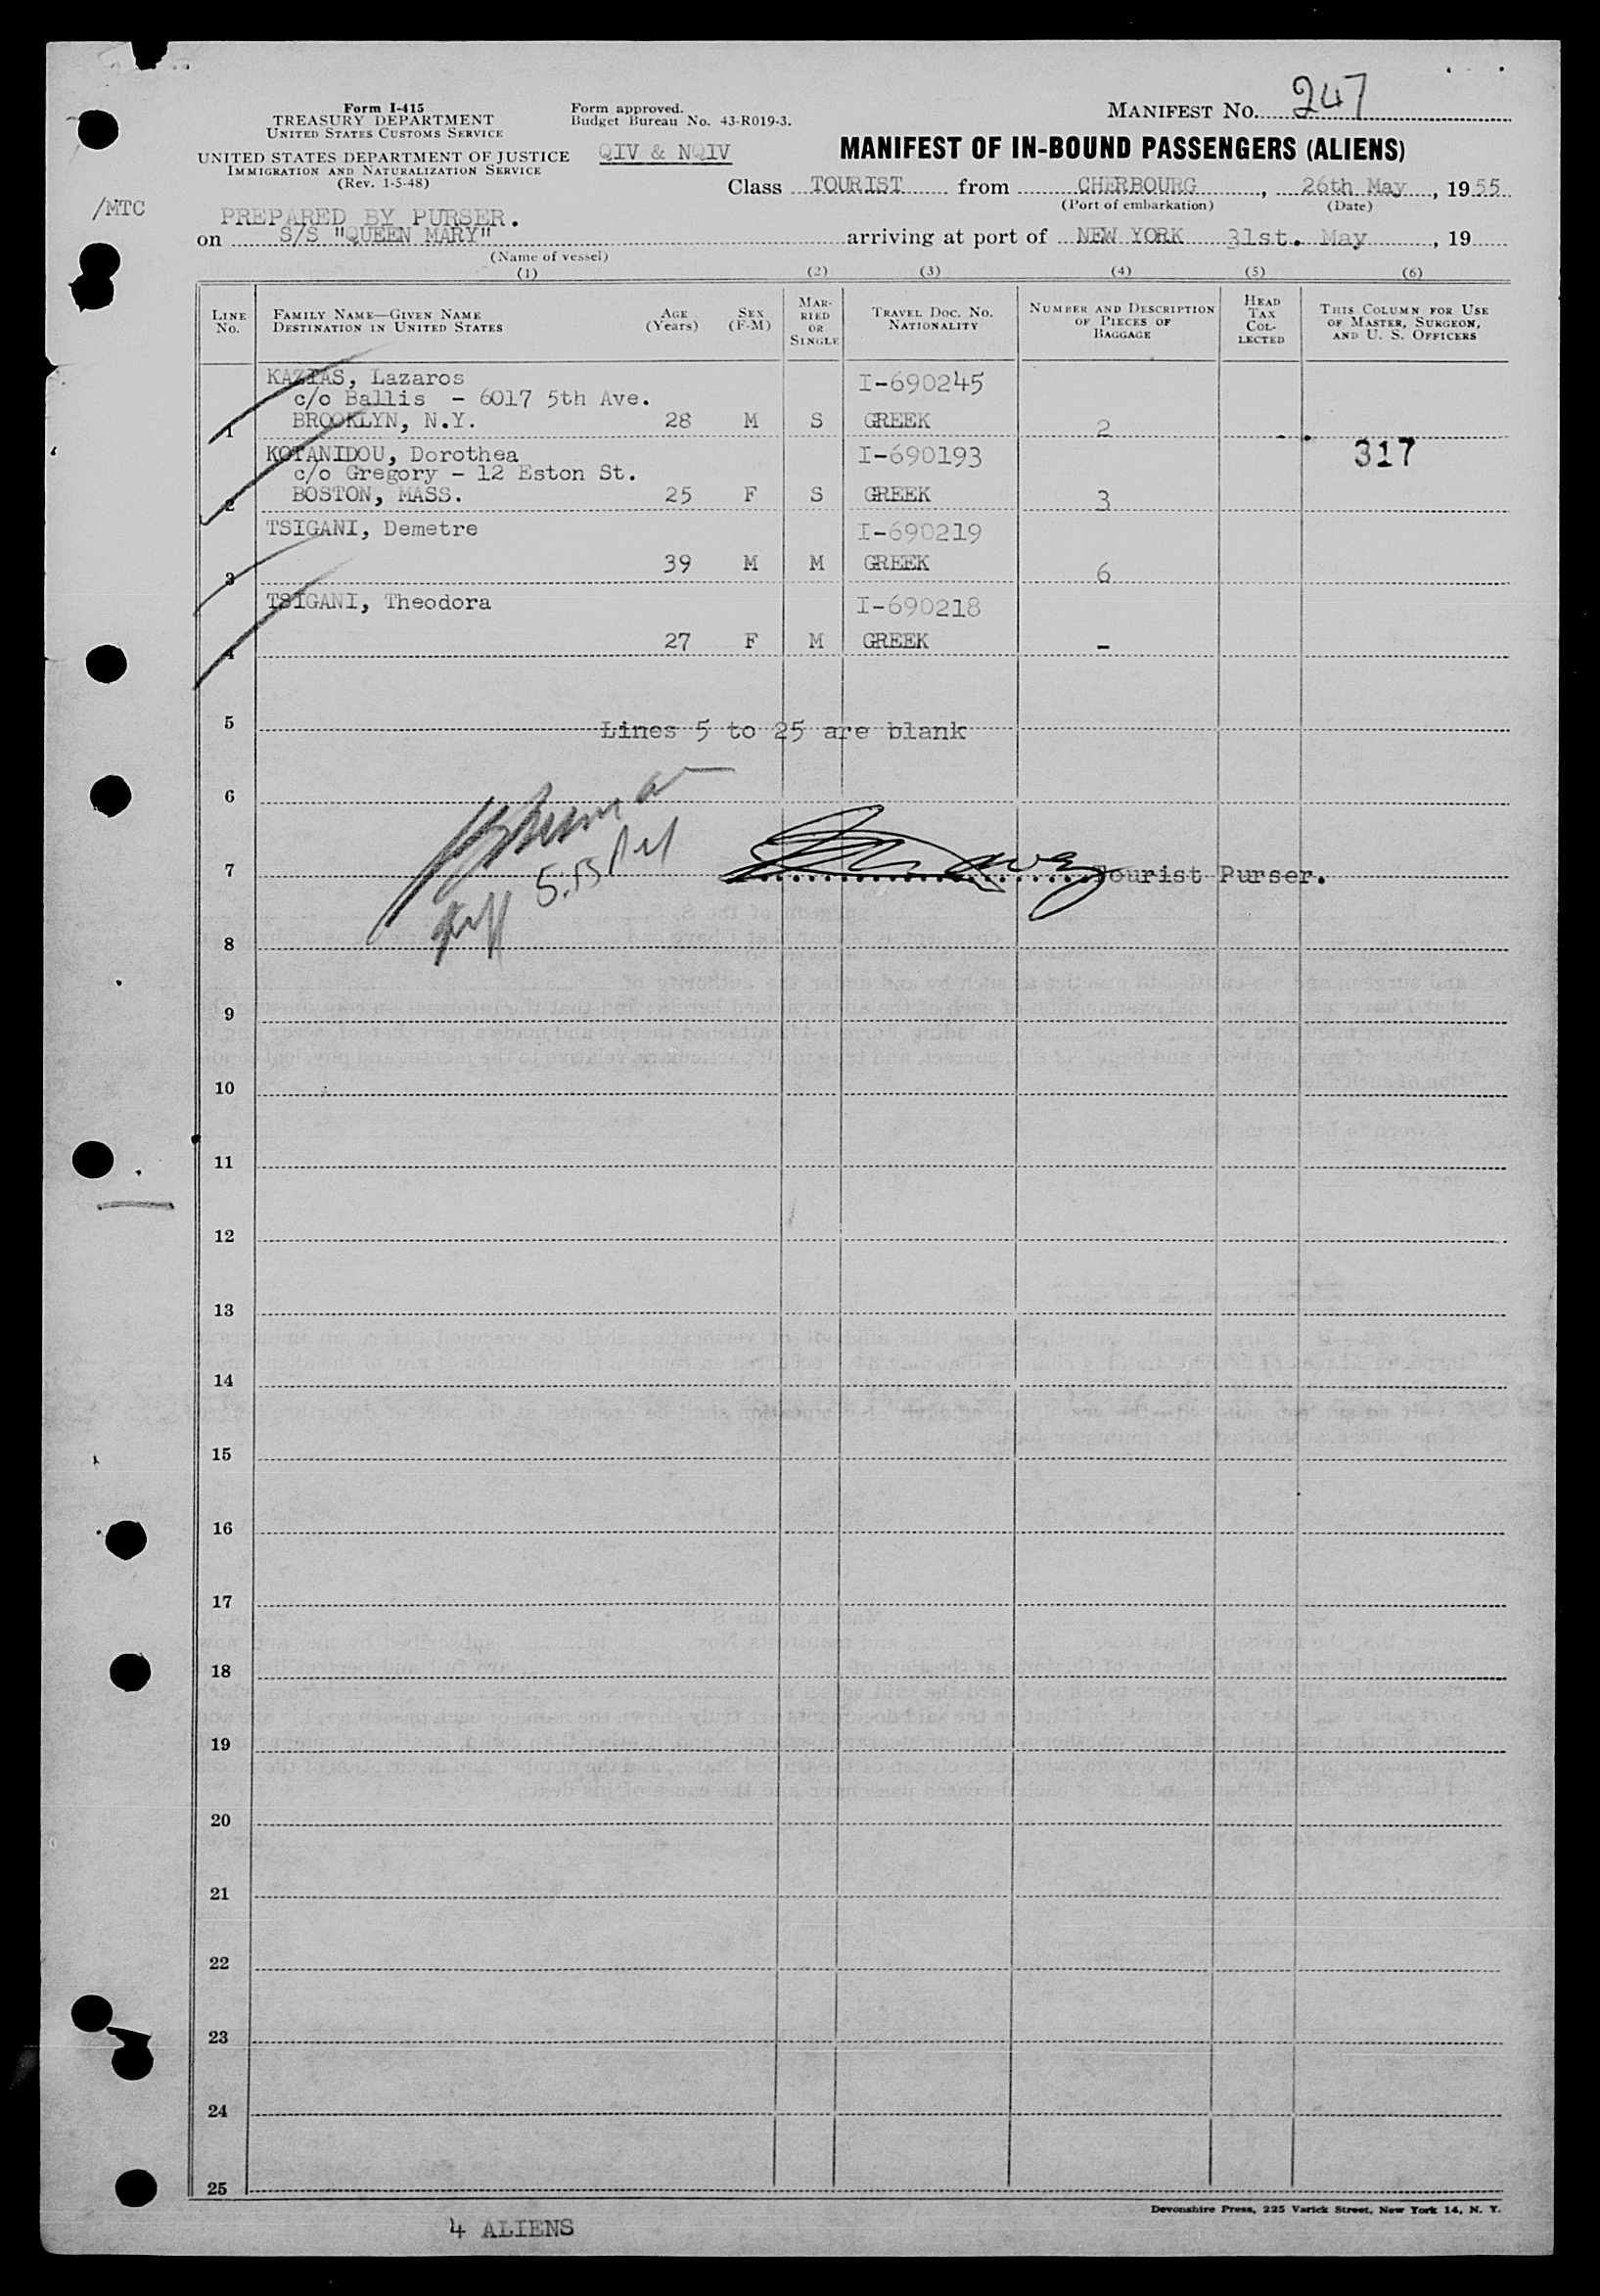 Form I-415
TREASURY DEPARTMENT
UNITED STATES CUSTOMS SERVICE
UNITED STATES DEPARTMENT OF JUSTICE
IMMIGRATION AND NATURALIZATION SERVICE
(Rev. 1-5-48)
Form approved.
Budget Bureau No. 43-R019-3.
QIV & NQIV
MANIFEST NO. 247
MANIFEST OF IN-BOUND PASSENGERS (ALIENS)
Class TOURIST from CHERBOURG, 26th May, 1955
(Port of embarkation) (Date)
/MTC
PREPARED BY PURSER.
on S/S "QUEEN MARY" arriving at port of NEW YORK 31st. May, 19
(Name of vessel)
(1) (2) (3) (4) (5) (6)
LINE No. FAMILY NAME—GIVEN NAME DESTINATION IN UNITED STATES AGE (Years) SEX (F-M) MARRIED OR SINGLE TRAVEL DOC. NO. NATIONALITY NUMBER AND DESCRIPTION OF PIECES OF BAGGAGE HEAD TAX COLLECTED THIS COLUMN FOR USE OF MASTER, SURGEON, AND U. S. OFFICERS
KAZIAS, Lazaros I-690245
c/o Ballis - 6017 5th Ave.
1 BROOKLYN, N.Y. 28 M S GREEK 2
KOTANIDOU, Dorothea I-690193 317
c/o Gregory - 12 Eston St.
2 BOSTON, MASS. 25 F S GREEK 3
TSIGANI, Demetre I-690219
3 39 M M GREEK 6
TSIGANI, Theodora I-690218
4 27 F M GREEK -
5 Lines 5 to 25 are blank
6
7 Tourist Purser.
8
9
10
11
12
13
14
15
16
17
18
19
20
21
22
23
24
25
Devonshire Press, 225 Varick Street, New York 14, N. Y.
4 ALIENS